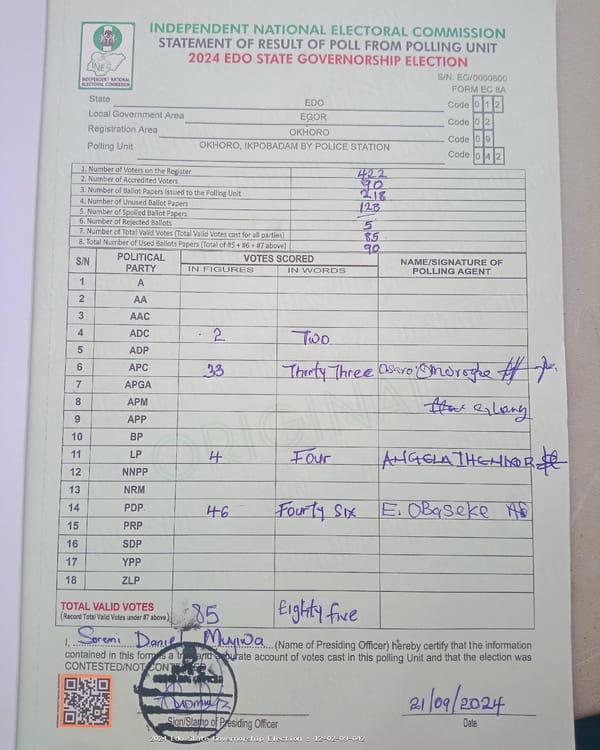 INDEPENDENT NATIONAL ELECTORAL COMMISSION
STATEMENT OF RESULT OF POLL FROM POLLING UNIT
2024 EDO STATE GOVERNORSHIP ELECTION
INEC
INDEPENDENT NATIONAL
ELECTORAL COMMISSION
S/N: EG/0000600
FORM EC 8A
State EDO Code 0 1 2
Local Government Area EGOR Code 0 2
Registration Area OKHORO Code 0 9
Polling Unit OKHORO, IKPOBADAM BY POLICE STATION Code 0 4 2
1. Number of Voters on the Register 422
2. Number of Accredited Voters 90
3. Number of Ballot Papers Issued to the Polling Unit 218
4. Number of Unused Ballot Papers 128
5. Number of Spoiled Ballot Papers —
6. Number of Rejected Ballots 5
7. Number of Total Valid Votes (Total Valid Votes cast for all parties) 85
8. Total Number of Used Ballots Papers (Total of #5 + #6 + #7 above) 90
S/N POLITICAL PARTY VOTES SCORED NAME/SIGNATURE OF POLLING AGENT
IN FIGURES IN WORDS
1 A
2 AA
3 AAC
4 ADC 2 Two
5 ADP
6 APC 33 Thirty Three
7 APGA
8 APM
9 APP
10 BP
11 LP 4 Four ANGELA
12 NNPP
13 NRM
14 PDP 46 Fourty Six E. OBASEKE
15 PRP
16 SDP
17 YPP
18 ZLP
ORIGINAL
TOTAL VALID VOTES 85 Eighty five
(Record Total Valid Votes under #7 above)
I, Soremi Daniel Muyiwa (Name of Presiding Officer) hereby certify that the information
contained in this form is a true and accurate account of votes cast in this polling Unit and that the election was
CONTESTED/NOT CONTESTED
21/09/2024
Sign/Stamp of Presiding Officer Date
2024 Edo State Governorship Election : 12-02-09-042